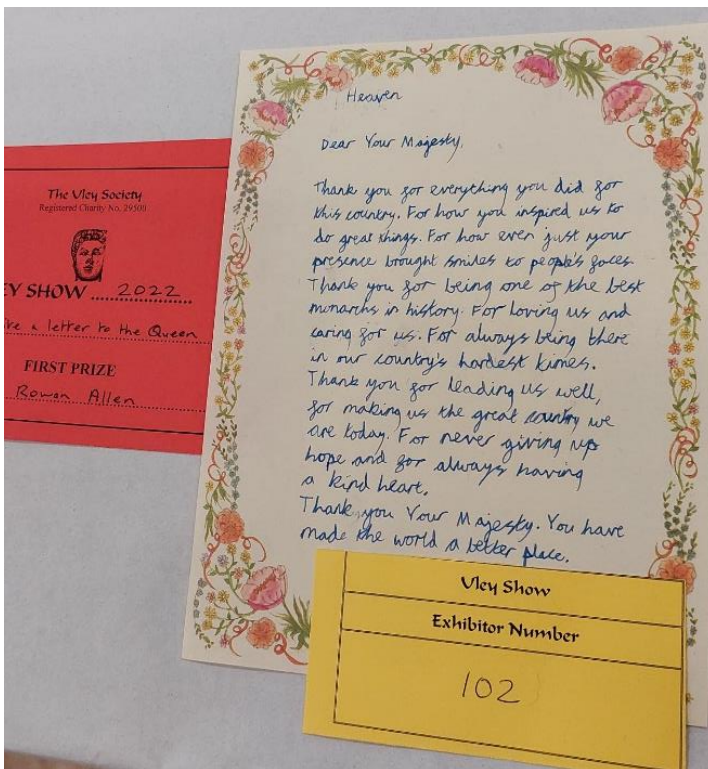 The Uley Society
Registered Charity No. 29500
EY SHOW 2022
a letter to the Queen
FIRST PRIZE
Rowan Allen
Heaven
Dear Your Majesty,
Thank you for everything you did for
this country. For how you inspired us to
do great things. For how even just your
presence brought smiles to people's faces.
Thank you for being one of the best
monarchs in history. For loving us and
caring for us. For always being there
in our country's hardest times.
Thank you for leading us well,
for making us the great country we
are today. For never giving up
hope and for always having
a kind heart.
Thank you Your Majesty. You have
made the world a better place.
Uley Show
Exhibitor Number
102